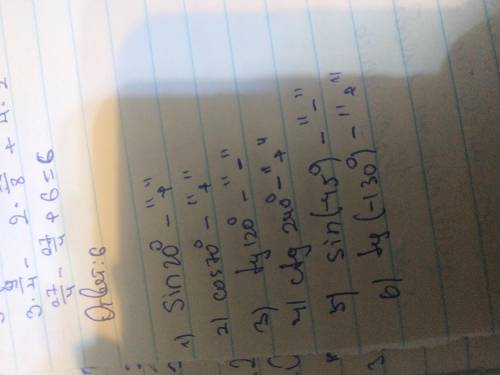 3·4 - 2· 8 + 4·
27/4 - 27/4 + 6 = 6
Ответ: 6
1) sin20° - "+"
2) cos70° - "+"
3) tg120° - "-"
4) ctg 240° - "+"
5) sin(-45°) - "-"
6) tg(-130°) - "+"